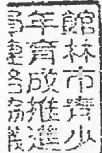 館林市青少
年育成推進
員連絡協議